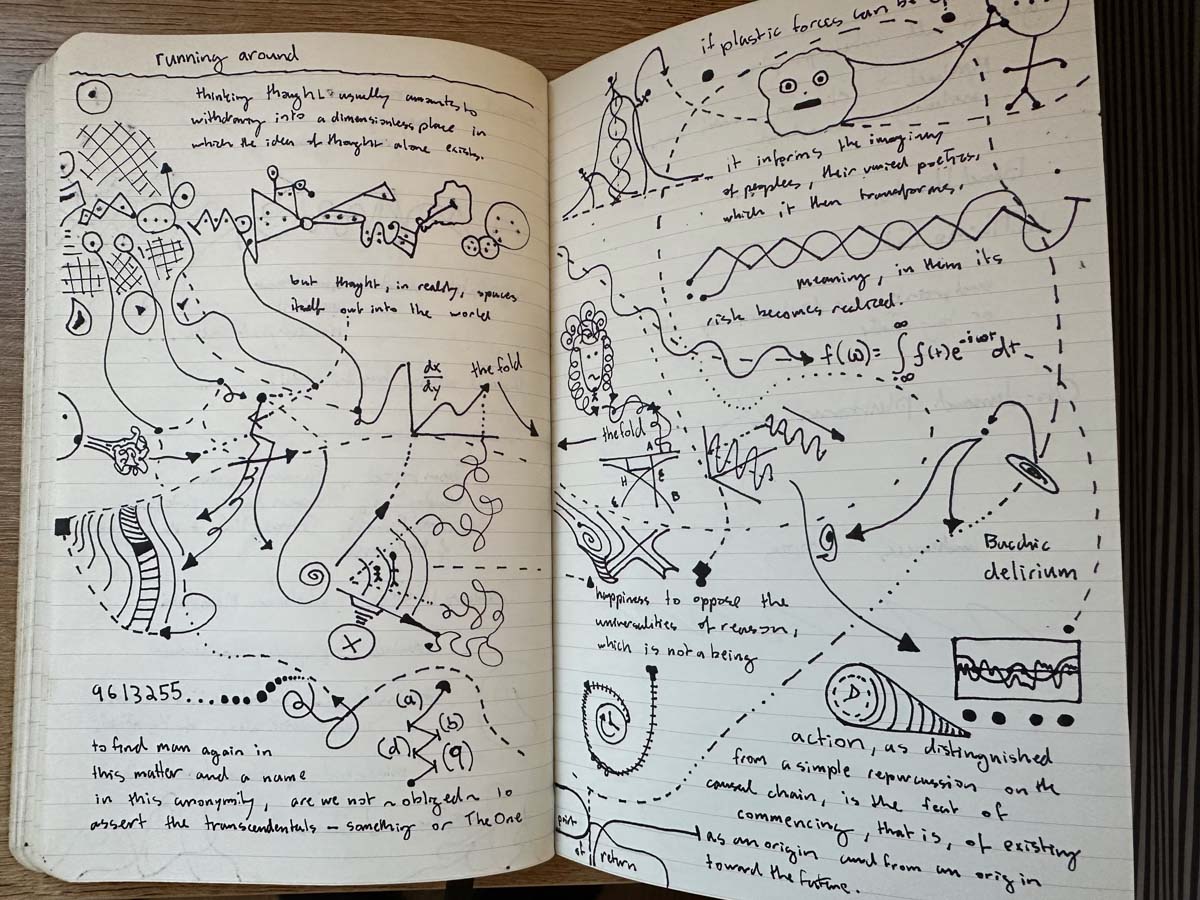 running around
thinking thought usually amounts to
withdrawing into a dimensionless place in
which the idea of thought alone exists.
but thought, in reality, spaces
itself out into the world
dx
dy
the fold
9613255....
(a)
(b)
(d)
(q)
to find man again in
this matter and a name
in this anonymity, are we not ~ obliged ~ to
assert the transcendentals – something or The One
if plastic forces can be
it informs the imaginary
of peoples, their varied poetics,
which it then transforms,
meaning, in them its
risk becomes realized.
f(ω)= ∫ f(t)e^-iωt dt
∞
-∞
the fold
A
H
E
G
B
Bacchic
delirium
happiness to oppose the
universalities of reason,
which is not a being
D
action, as distinguished
from a simple repurcussion on the
causal chain, is the feat of
commencing, that is, of existing
as an origin and from an origin
toward the future.
point
of
return